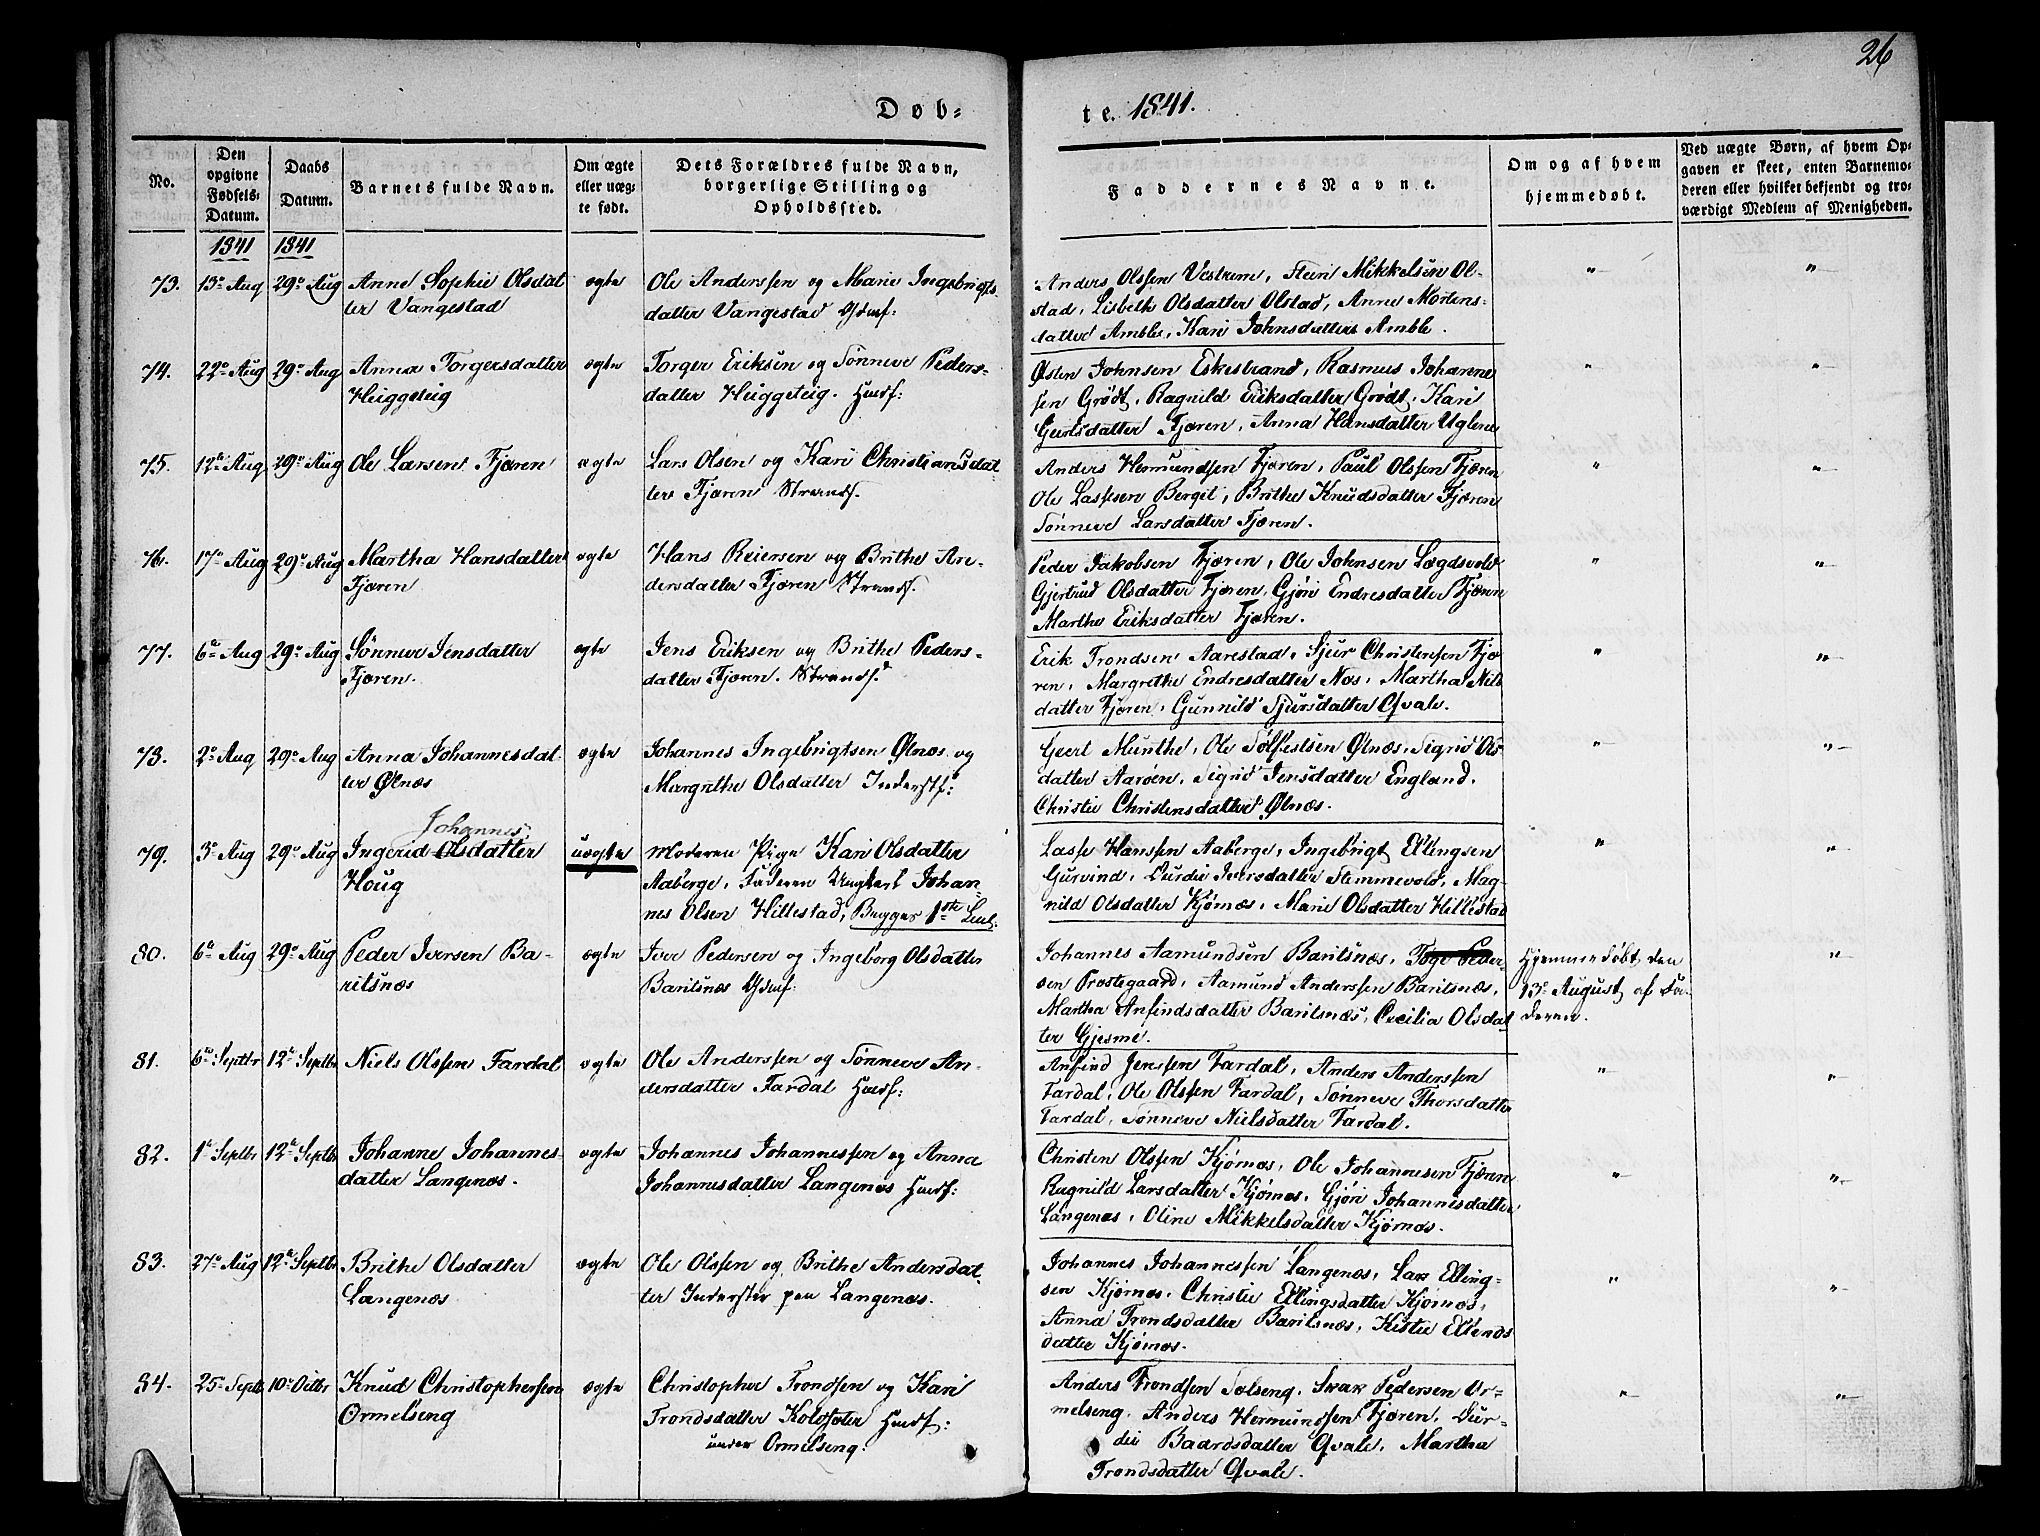 26
Døb=
te. 1841.
No.
Den opgivne Fødsels-Datum.
Daabs Datum.
Barnets fulde Navn.
Om ægte eller uægte født.
Dets Forældres fulde Navn, borgerlige Stilling og Opholdssted.
Faddernes Navne.
Om og af hvem hjemmedøbt.
Ved uægte Børn, af hvem Opgaven er skeet, enten Barnemoderen eller hvilket bekjendt og troværdigt Medlem af Menigheden.
1841 1841
73. 13de Aug 29de Aug Anne Sophie Olsdat
ter Vangestad
ægte
Ole Anderssen og Marie Ingebrigts
datter Vangestad
Anders Olssen Vestrem, Steen Mikkelsen Ol-
stad, Lisbeth Olsdatter Olstad, Anne Mortens-
datter Amble, Kari Johnsdatter Amble.
74. 22de Aug 29de Aug Anna Torgersdatter
Heiggeteig
ægte
Torger Eriksen og Sønneve Peders-
datter Heiggeteig. Huusf:
Østen Johnsen Eskestrand, Rasmus Johanne
sen Grødt, Ragnild Eriksdatter Grødt, Kari
Geertsdatter Fjæren, Anna Hansdatter Uglene
75. 12te Aug 29de Aug Ole Larsen Fjæren
ægte
Lars Olsen og Kari Christiansdat
ter Fjæren Strands.
Anders Hermundsen Fjæren, Paul Olssen Fjæren
Ole Lassesen Berget, Brithe Knudsdatter Fjæren
Sønneve Larsdatter Fjæren.
76. 17de Aug 29de Aug Martha Hansdatter
Fjæren
ægte
Hans Reiersen og Brithe An-
dersdatter Fjæren Strands.
Peder Jakobsen Fjæren, Ole Johnsen Lægdsvold
Gjertrud Olsdatter Fjæren, Gjøri Endresdatter Fjæren
Martha Eriksdatter Fjæren.
77. 6te Aug 29de Aug Sønneve Jensdatter
Fjæren.
ægte
Jens Eriksen og Brithe Peders-
datter Fjæren. Strands.
Erik Trondsen Aarestad, Sjur Christensen Fjæ
ren, Margrethe Endresdatter Nøs, Martha Nils
datter Fjæren, Gunnild Sjursdatter Qvale.
78. 2de Aug 29de Aug Anna Johannesdat
ter Ølnæs
ægte
Johannes Ingebrigtsen Ølnæs og
Margrethe Olsdatter Inderstf:
Geert Munthe, Ole Sølfestsen Ølnæs, Sigrid Ols
datter Aarøen, Sigrid Jensdatter Engeland,
Christie Christensdatter Ølnæs.
79. 3de Aug 29de Aug
Johannes
Ingerid Olsdatter
Houg
uægte
Moderen Pige Kari Olsdatter
Aaberge, Faderen Ungkarl Johan-
nes Olsen Hillestad, Begges 1ste Leie.
Lasse Hanssen Aaberge, Ingebrigt Ellingsen
Gurvind, Durdei Iversdatter Stemmevold, Mag-
nild Olsdatter Kjørnæs, Marie Olsdatter Hillestad
80. 6te Aug 29de Aug Peder Iversen Ba-
ritsnæs
ægte
Iver Pedersen og Ingeborg Olsdatter
Baritsnæs
Johannes Aamundsen Baritsnæs, Peder-
sen Prostegaard, Aamund Anderssen Baritsnæs,
Martha Anfindsdatter Baritsnæs, Cecilia Olsdat
ter Gjesme.
Hjemmedøbt den
13de August af Fa-
deren.
81. 6te Septbr 12te Septbr Niels Olssen Fardal
ægte
Ole Anderssen og Sønneve An-
dersdatter Fardal Huusf:
Anfind Jenssen Fardal, Anders Anderssen
Fardal, Ole Olssen Fardal, Sønneve Thorsdatter
Fardal, Sønneve Nielsdatter Fardal.
82. 1te Septbr 12te Septbr Johanne Johannes-
datter Langenæs.
ægte
Johannes Johannessen og Anna
Johannesdatter Langenæs Huusf:
Christen Olssen Kjørnæs, Ole Johannesen Fjæren
Ragnild Larsdatter Kjørnæs, Gjøri Johannesdatter
Langenæs, Oline Mikkelsdatter Kjørnæs.
83. 27de Aug 12te Septbr Brithe Olsdatter
Langenæs
ægte
Ole Olssen og Brithe Andersdat
ter Inderster paa Langenæs.
Johannes Johannessen Langenæs, Lars Elling-
sen Kjørnæs, Christie Ellingsdatter Kjørnæs,
Anna Trondsdatter Baritsnæs, Kistie Ellends
datter Kjørnæs.
84. 25de Septb 10de Octbr Knud Christophersen
Ormelseng
ægte
Christopher Trondsen og Kari
Trondsdatter Koldsæter Huusf:
under Ormelseng.
Anders Trondsen Solseng, Ivar Pedersen Or-
melseng, Anders Hermundsen Fjæren, Dur-
dei Baardsdatter Qvale, Martha
Trondsdatter Qvale.